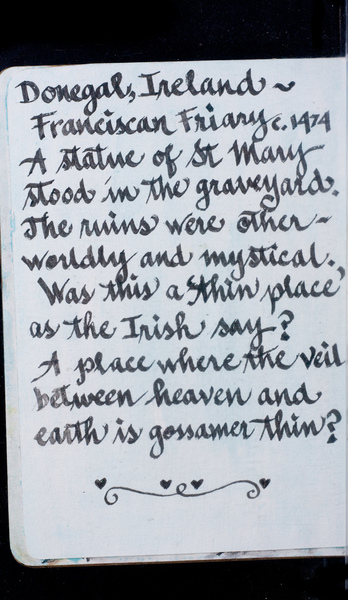 Donegal, Ireland ~
Franciscan Friary c. 1474
A statue of St Mary
stood in the graveyard.
The ruins were other-
worldly and mystical.
Was this a 'thin place'
as the Irish say?
A place where the veil
between heaven and
earth is gossamer thin?